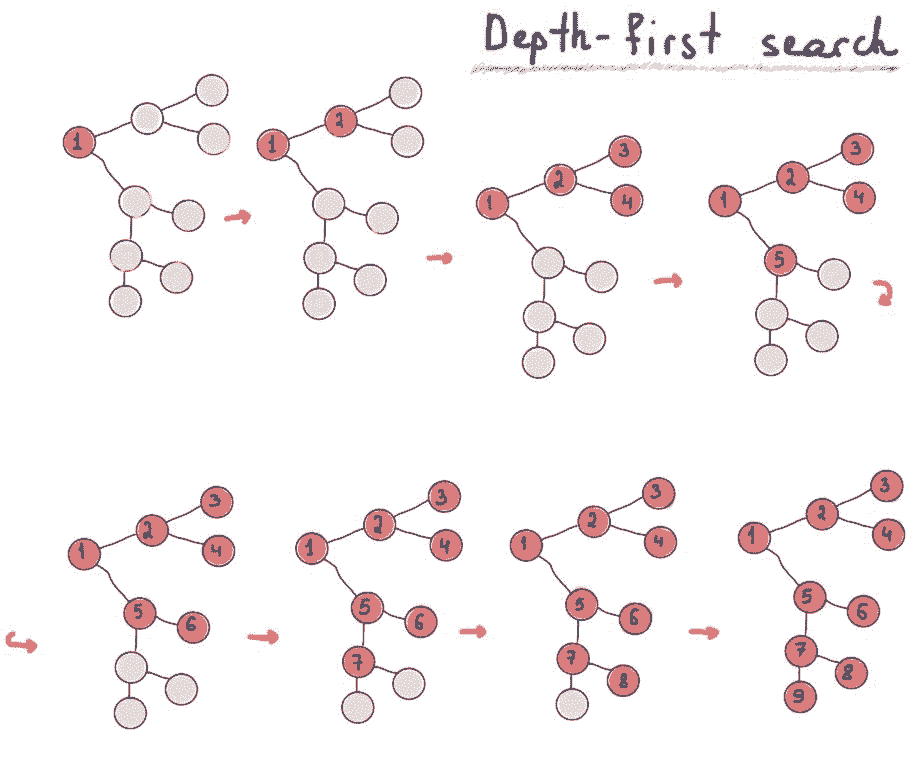 Depth-first search
1
1 2
1 2 3 4
1 2 3 4 5
1 2 3 4 5 6
1 2 3 4 5 6 7
1 2 3 4 5 6 7 8
1 2 3 4 5 6 7 8 9